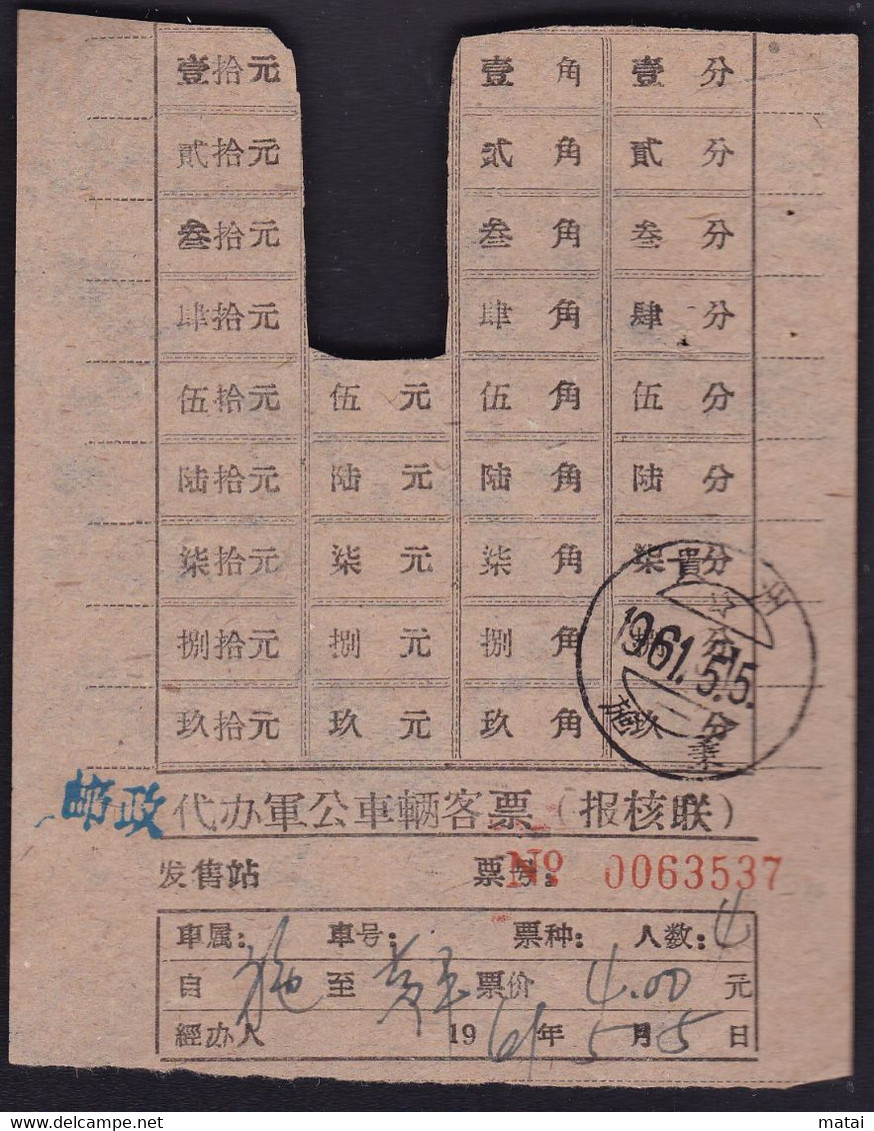 壹拾元 壹角 壹分
貳拾元 貳角 貳分
叁拾元 叁角 叁分
肆拾元 肆角 肆分
伍拾元 伍元 伍角 伍分
陆拾元 陆元 陆角 陆分
柒拾元 柒元 柒角 柒分
捌拾元 捌元 捌角 捌分
玖拾元 玖元 玖角 玖分
貴州
1961.5.5.
施秉
邮政代办軍公車輛客票（报核联）
发售站 票号: No 0063537
車属: 車号: 票种: 人数: 4
自 施 至 黄平 票价 4.00 元
經办人 1961年5月5日
delcampe.net
matai